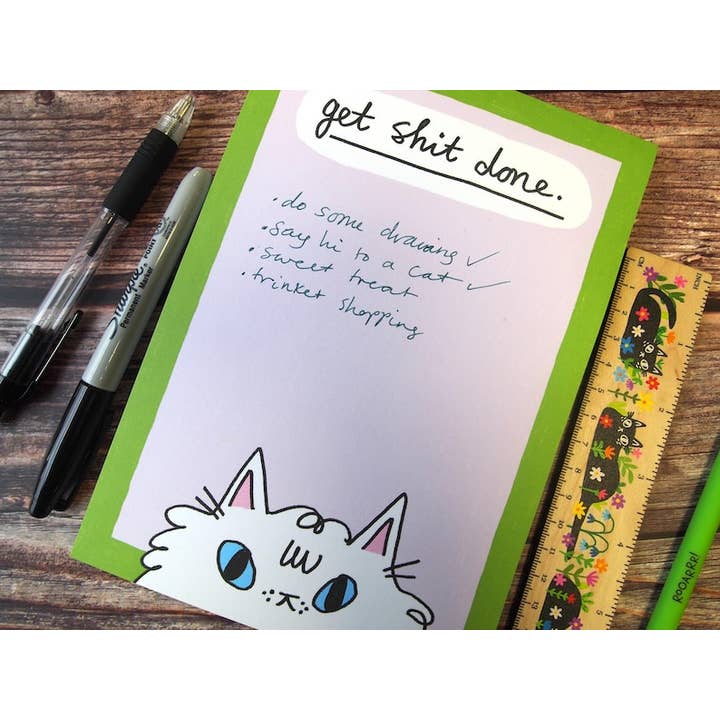 get shit done.
• do some drawing ✓
• say hi to a cat ✓
• sweet treat
• trinket shopping
Sharpie
Permanent Marker
ROOARRR!